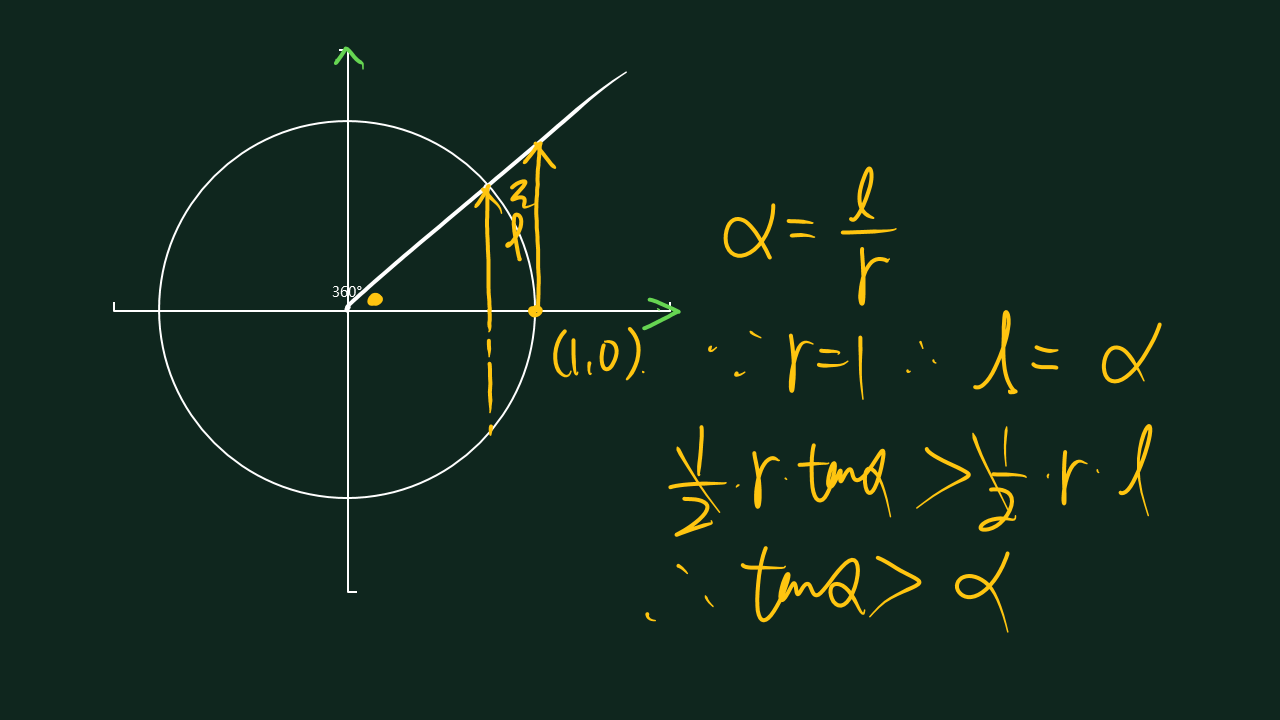 360°
l
(1,0).
α = l/r
∵ r=1 ∴ l = α
1/2 · r · tanα > 1/2 · r · l
∴ tanα > α